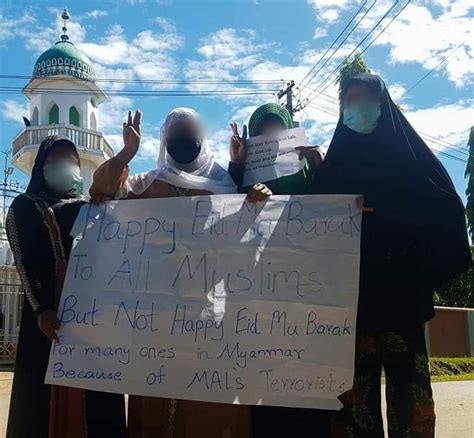 Happy Eid Mu Barak
To All Muslims
But Not Happy Eid Mu Barak
For many ones in Myanmar
Because of MAL's Terrorists